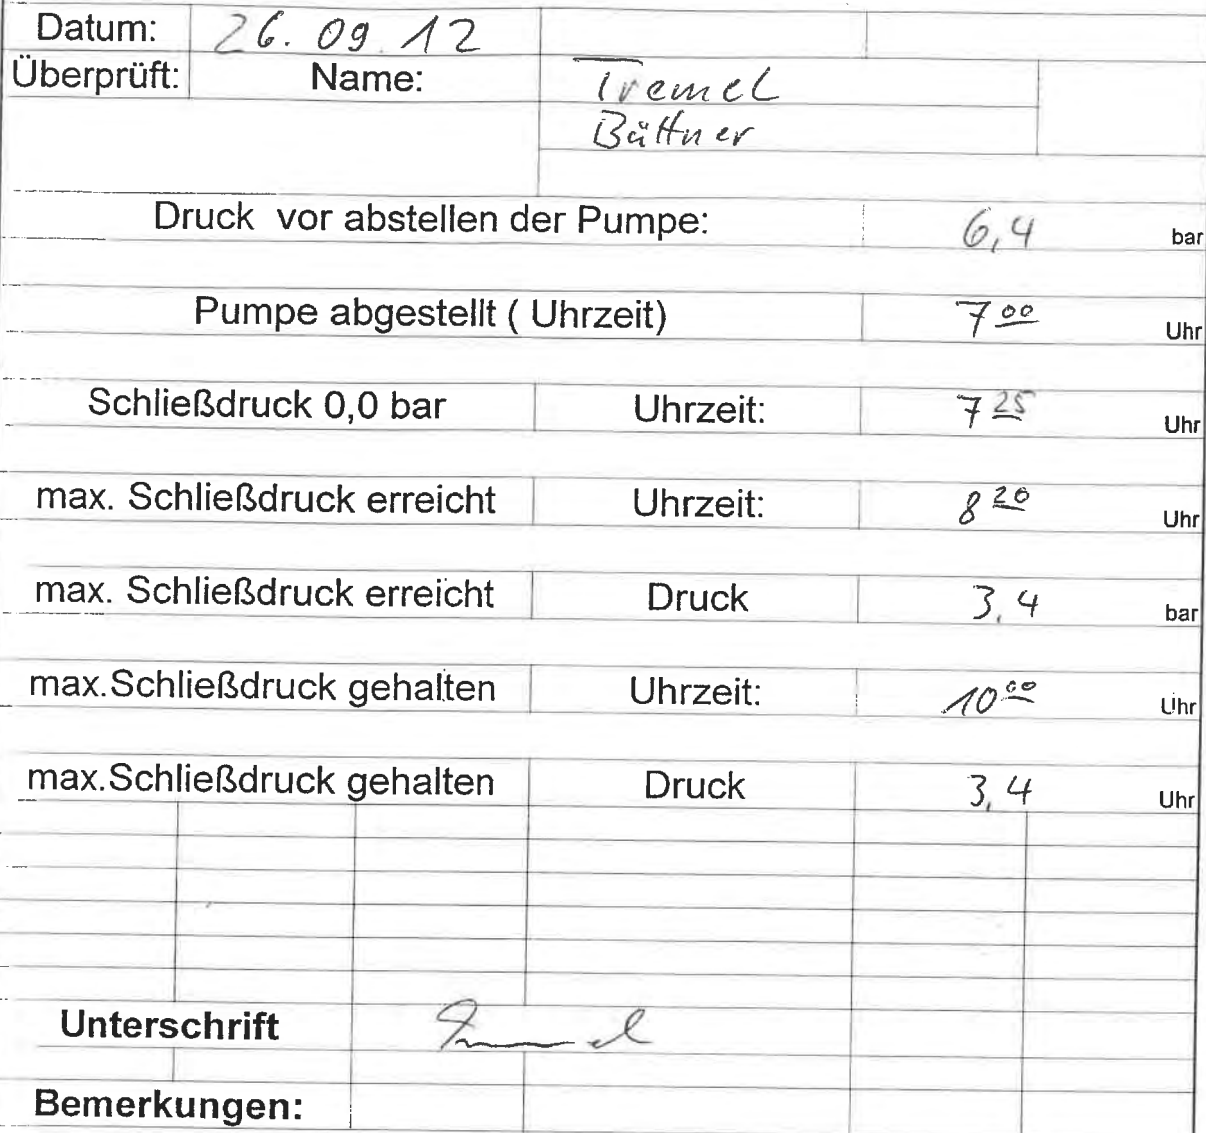 Datum: 26.09.12
Überprüft: Name: Tremel
Büttner
Druck vor abstellen der Pumpe: 6,4 bar
Pumpe abgestellt ( Uhrzeit) 7 00 Uhr
Schließdruck 0,0 bar Uhrzeit: 7 25 Uhr
max. Schließdruck erreicht Uhrzeit: 8 20 Uhr
max. Schließdruck erreicht Druck 3,4 bar
max.Schließdruck gehalten Uhrzeit: 10 00 Uhr
max.Schließdruck gehalten Druck 3,4 Uhr
Unterschrift
Bemerkungen: